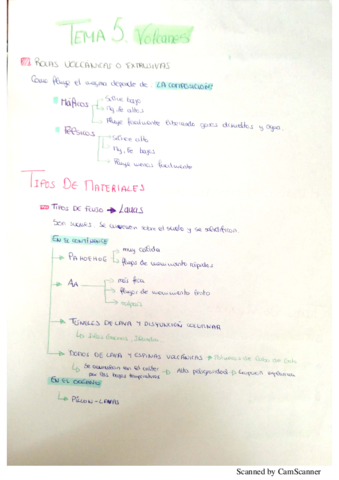 TEMA 5. Volcanes
ROCAS VOLCANICAS O EXTRUSIVAS
Como fluye el magma depende de: LA COMPOSICIÓN
MÁFICOS
Sílice bajo
Mg, Fe altos
Fluye facilmente liberando gases disueltos y agua.
FÉLSICOS
Sílice alto
Mg, Fe bajos
Fluye menos facilmente
TIPOS DE MATERIALES
TIPOS DE FLUJO → LAVAS
Son cuando se en el suelo y se solidifican.
EN EL CONTINENTE
PAHOEHOE
muy cálida
flujos de movimiento rápidos
AA
más fría
flujos de movimiento lento
TÚNELES DE LAVA Y DISYUNCIÓN COLUMNAR
DOMOS DE LAVA Y ESPINAS VOLCÁNICAS
Se en el cráter
por las bajas temperaturas
Alta peligrosidad
EN EL OCÉANO
PILLOW-LAVAS
Scanned by CamScanner